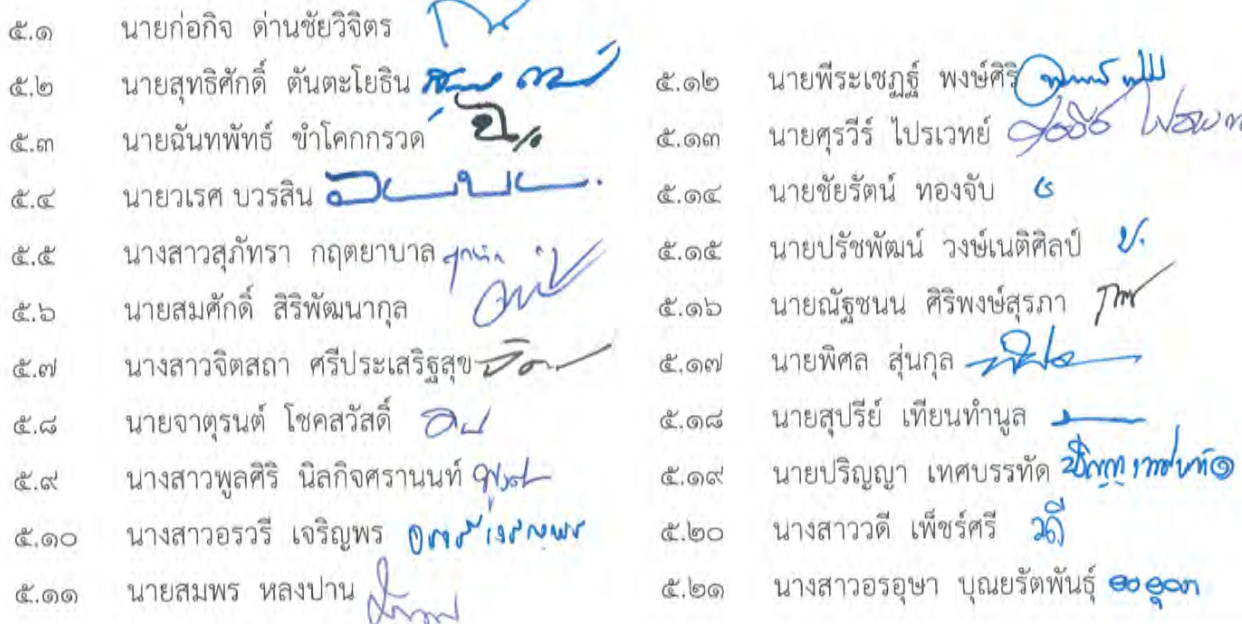 ๕.๑ นายก่อกิจ ด่านชัยวิจิตร
๕.๒ นายสุทธิศักดิ์ ตันตะโยธิน
๕.๓ นายฉันทพัทธ์ ขำโคกกรวด
๕.๔ นายวเรศ บวรสิน
๕.๕ นางสาวสุภัทรา กฤตยาบาล
๕.๖ นายสมศักดิ์ สิริพัฒนากุล
๕.๗ นางสาวจิตสถา ศรีประเสริฐสุข
๕.๘ นายจาตุรนต์ โชคสวัสดิ์
๕.๙ นางสาวพูลศิริ นิลกิจศรานนท์
๕.๑๐ นางสาวอรวรี เจริญพร อรวรี เจริญพร
๕.๑๑ นายสมพร หลงปาน
๕.๑๒ นายพีระเชฏฐ์ พงษ์ศิริ
๕.๑๓ นายศุรวีร์ ไปรเวทย์
๕.๑๔ นายชัยรัตน์ ทองจับ
๕.๑๕ นายปรัชพัฒน์ วงษ์เนติศิลป์ ป.
๕.๑๖ นายณัฐชนน ศิริพงษ์สุรภา
๕.๑๗ นายพิศล สุ่นกุล
๕.๑๘ นายสุปรีย์ เทียนทำนูล
๕.๑๙ นายปริญญา เทศบรรทัด
๕.๒๐ นางสาววดี เพ็ชร์ศรี วดี
๕.๒๑ นางสาวอรอุษา บุณยรัตพันธุ์